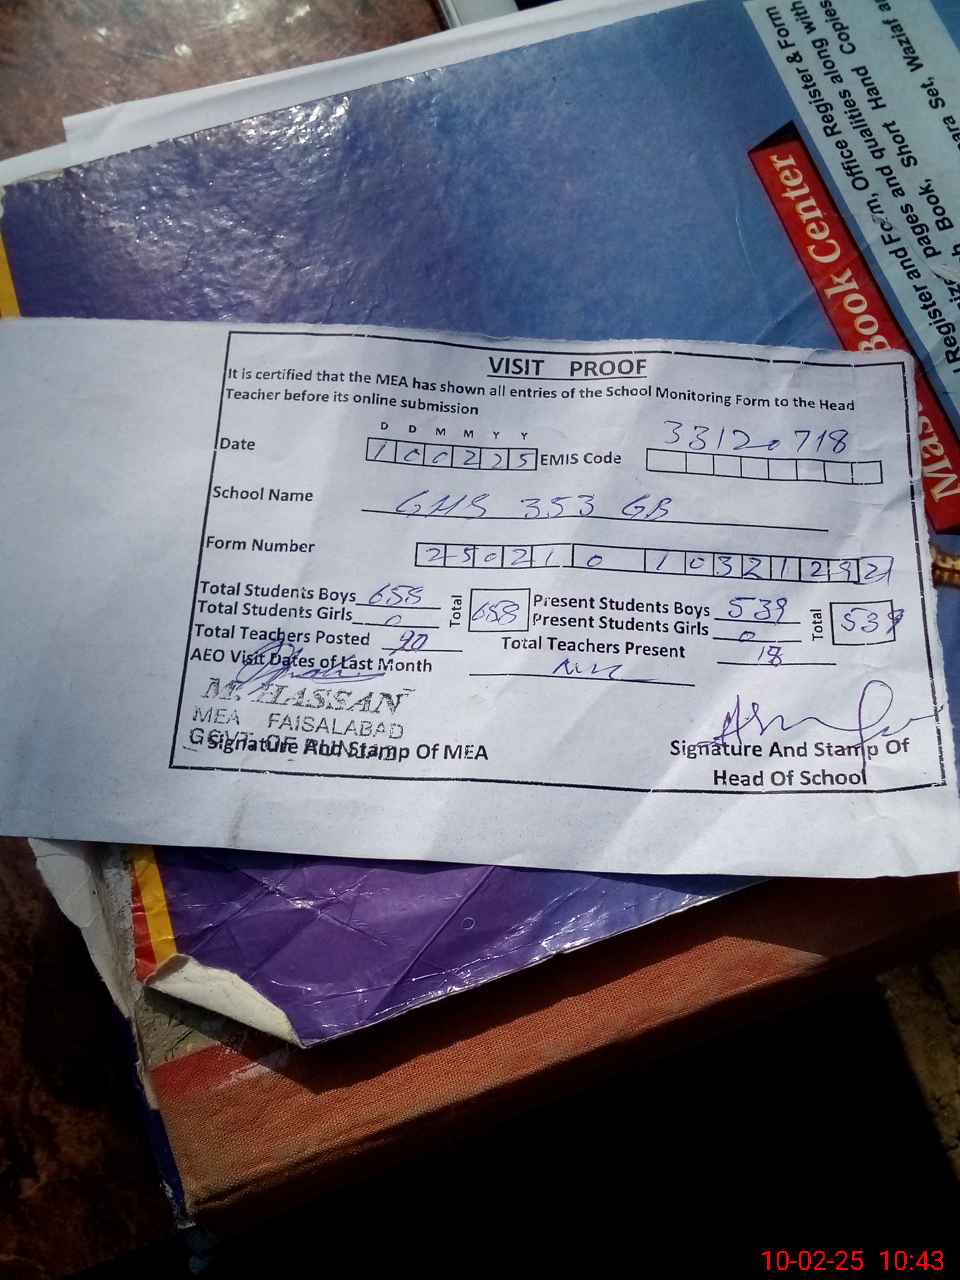 Register & Form
Register and Form, Office Register along with
pages and qualities
Book, Short Hand Copies
Set, Waziaf
Book Center
VISIT PROOF
It is certified that the MEA has shown all entries of the School Monitoring Form to the Head
Teacher before its online submission
D D M M Y Y
Date 100225 EMIS Code 33120718
School Name GHS 353 GB
Form Number
Total Students Boys 658 Total 658 Present Students Boys 539 Total 539
Total Students Girls 0 Present Students Girls 0
Total Teachers Posted 20 Total Teachers Present 18
AEO Visit Dates of Last Month Nil
M. HASSAN
MEA FAISALABAD
GOVT OF PUNJAB
Signature And Stamp Of MEA
Signature And Stamp Of
Head Of School
10-02-25 10:43